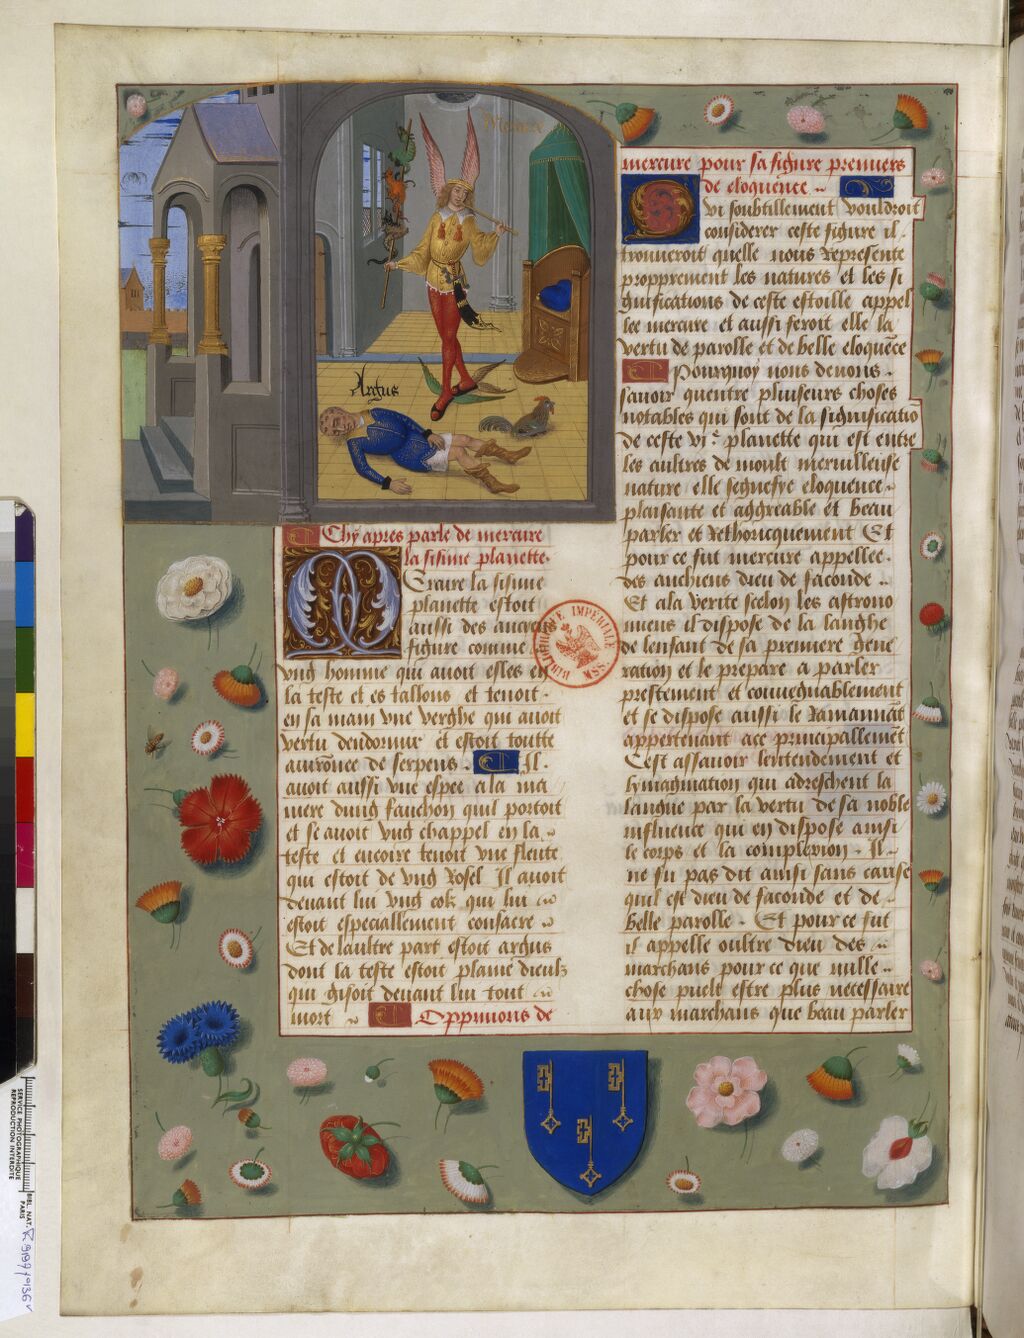 Mercure
Argus
Chy apres parle de mercure
la sisime planette.
Mercure la sisime
planette estoit
aussi des anciens
figure comme
vng homme qui auoit esles en
la teste et es tallons et tenoit
en sa main vne verghe qui auoit
vertu dendormir et estoit toutte
auironee de serpens. Il
auoit aussi vne espee a la ma
niere dung fauchon quil portoit
et se auoit vng chappel en la
teste et encoire tenoit vne fleute
qui estoit de vng Rosel Il auoit
deuant lui vng cok qui lui
estoit especiallement consacre
Et de laultre part estoit argus
dont la teste estoit plaine dieulx
qui gisoit deuant lui tout
mort Oppinions de
mercure pour sa figure premiers
de eloquence.
Qvi soubtillement vouldroit
considerer ceste figure il
trouueroit quelle nous Represente
propprement les natures et les si
gnifications de ceste estoille appel
lee mercure et aussi seroit elle la
vertu de parolle et de belle eloquece
Pourquoy nous deuons
sauoir quentre pluiseurs choses
notables qui sont de la significatio
de ceste vi.e planette qui est entre
les aultres de moult merueilleuse
nature elle segnefye eloquence
plaisante et aggreable et beau
parler et Rethoricquement Et
pour ce fut mercure appellee
des anchiens dieu de faconde
Et a la verite scelon les astrono
miens il dispose de la langhe
de lenfant de sa premiere gene
ration et le prepare a parler
prestement et conuegnablement
et se dispose aussi le Ramannat
appertenant a ce principallemet
Cest assauoir lentendement et
lymagination qui adreschent la
langue par la vertu de sa noble
influence qui en dispose ainsi
le corps et la complexion. Il
ne fu pas dit ainsi sans cause
quil est dieu de faconde et de
belle parolle. Et pour ce fut
il appelle oultre dieu des
marchans pour ce que nulle
chose puelt estre plus necessaire
aux marchans que beau parler
BIBLIOTHEQUE IMPERIALE
MSS.
BIBL. NAT. PARIS
SERVICE PHOTOGRAPHIQUE
REPRODUCTION INTERDITE